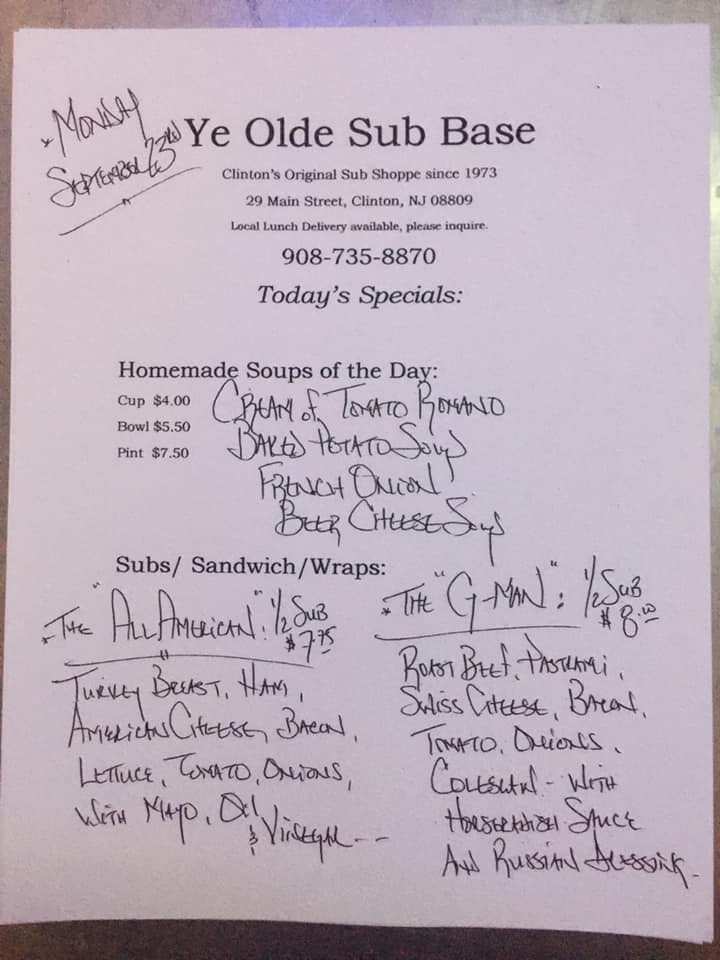 * MONDAY
SEPTEMBER 23RD
Ye Olde Sub Base
Clinton's Original Sub Shoppe since 1973
29 Main Street, Clinton, NJ 08809
Local Lunch Delivery available, please inquire.
908-735-8870
Today's Specials:
Homemade Soups of the Day:
Cup $4.00
Bowl $5.50
Pint $7.50
CREAM of TOMATO ROMANO
BAKED POTATO SOUP
FRENCH ONION
BEER CHEESE SOUP
Subs/ Sandwich/Wraps:
* THE "ALL AMERICAN": 1/2 SUB
$7.75
TURKEY BREAST, HAM,
AMERICAN CHEESE, BACON,
LETTUCE, TOMATO, ONIONS,
WITH MAYO, OIL
& VINEGAR --
* THE "G-MAN": 1/2 SUB
$8.00
ROAST BEEF, PASTRAMI,
SWISS CHEESE, BACON,
TOMATO, ONIONS,
COLESLAW - WITH
HORSERADISH SAUCE
AND RUSSIAN DRESSING -